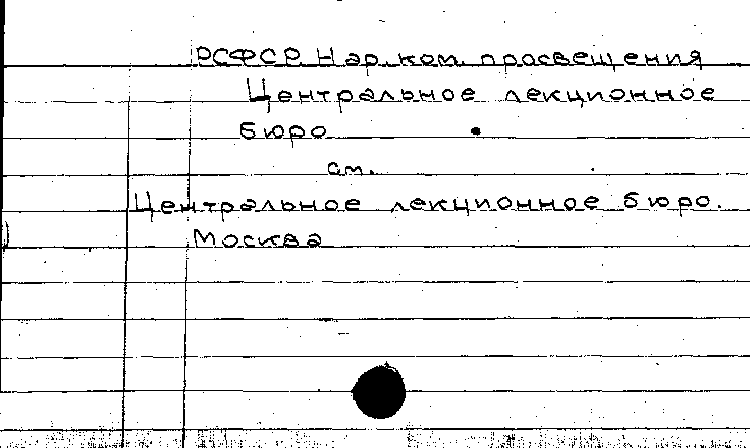 РСФСР. Нар. ком. просвещения
Центральное лекционное
бюро
см.
Центральное лекционное бюро.
Москва